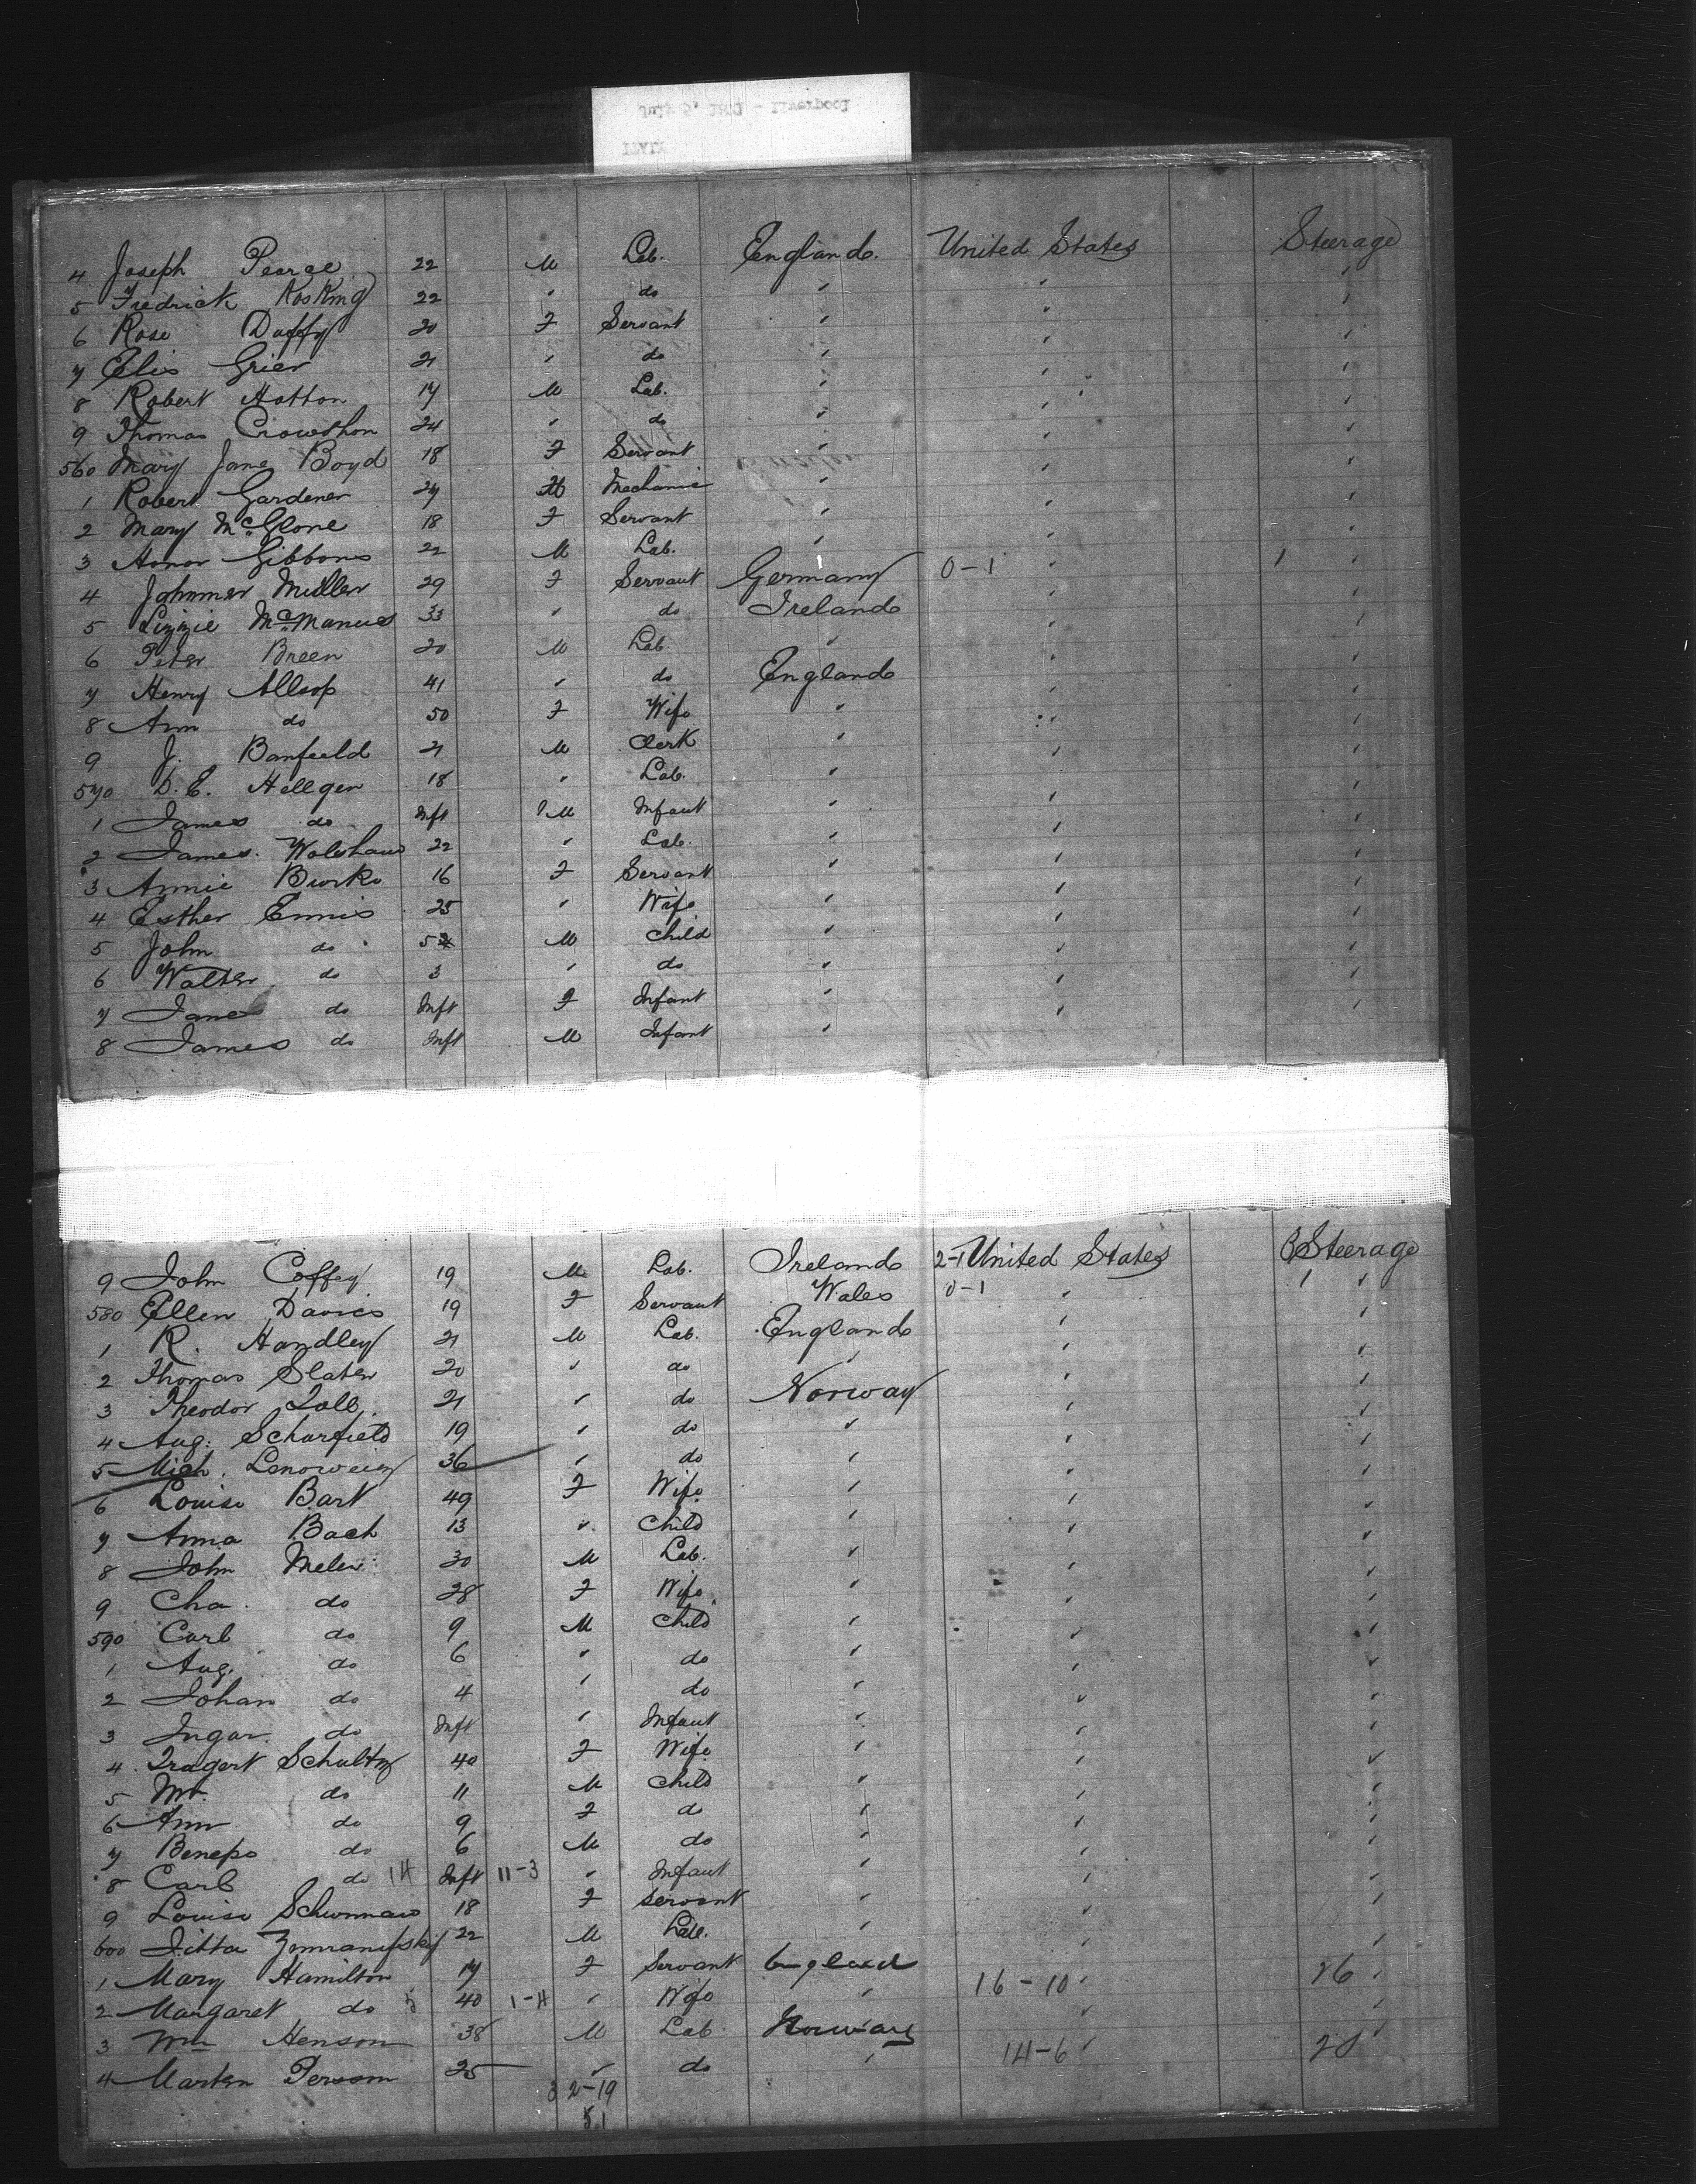 4 Joseph Pearce 22 M Lab. England. United States Steerage
5 Fredrick Hosking 22 " do " " "
6 Rose Duffy 20 F Servant " " "
7 Elis Grier 21 " do " " "
8 Robert Hatton 17 M Lab. " " "
9 Thomas Crowthon 24 " do " " "
560 Mary Jane Boyd 18 F Servant " " "
1 Robert Gardener 27 M Mechanic " " "
2 Mary McGlone 18 F Servant " " "
3 Honor Gibbons 22 M Lab. " " "
4 Miller 29 F Servant Germany 0-1 " 1 "
5 Lizzie McManus 33 " do Ireland " "
6 Peter Breen 20 M Lab. " " "
7 Henry Allsop 41 " do England " "
8 Ann do 50 F Wife " " "
9 J. Banfield 21 M Clerk " " "
570 D. E. Hellger 18 " Lab. " " "
1 James do Inft M Infant " " "
2 James. Walshaw 22 " Lab. " " "
3 Annie Burke 16 F Servant " " "
4 Esther Ennis 25 " Wife " " "
5 John do 5 M Child " " "
6 Walter do 3 " do " " "
7 Jane do Inft F Infant " " "
8 James do Inft M Infant " " "
9 John Coffey 19 M Lab. Ireland 2-1 United States 3 Steerage
580 Ellen Davies 19 F Servant Wales 0-1 " 1 "
1 R. Handley 21 M Lab. England " "
2 Thomas Slater 20 " do " " "
3 Theodor Toll 21 " do Norway " "
4 Aug. Scharfield 19 " do " " "
5 Mich. 36 " do " " "
6 Louise Bart 49 F Wife " " "
7 Anna Bach 13 " Child " " "
8 John Meler 30 M Lab. " " "
9 Cha. do 28 F Wife " " "
590 Carl do 9 M Child " " "
1 Aug. do 6 " do " " "
2 Johan do 4 " do " " "
3 Ingar do Inft " Infant " " "
4 Schultz 40 F Wife " " "
5 Mt. do 11 M Child " " "
6 Ann do 9 F do " " "
7 do 6 M do " " "
8 Carl do 14 Inft 11-3 " Infant " " "
9 Louise 18 F Servant " " "
600 22 M Lab. " " "
1 Mary Hamilton 17 F Servant England " "
2 Margaret do 5 40 1-4 " Wife " 16-10 " 26 "
3 Wm Henson 38 M Lab Norway " "
4 Marten Persson 25 " do " 14-6 " 20
3 2-19
51